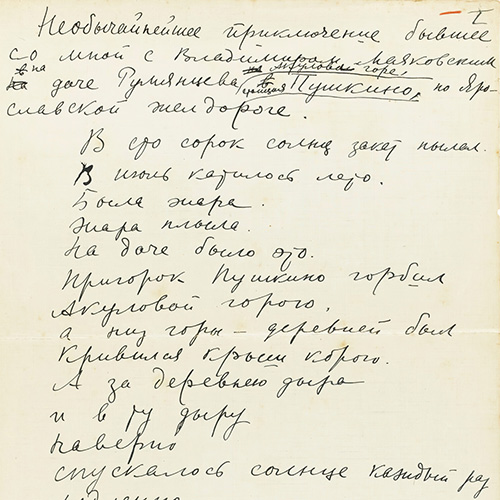 I
Необычайнейшее приключение бывшее
со мной с Владимиром Маяковским
на Акулова гора,
на даче Румянцева, Пушкино, по Яро-
славской желдороге.
В сто сорок солнц закат пылал.
В июль катилось лето.
Была жара.
Жара плыла.
На даче было это.
Пригорок Пушкино горбил
Акуловой горою.
а низ горы – деревней был
Кривился крыш корою.
А за деревнею дыра
и в ту дыру
наверно
спускалось солнце каждый раз